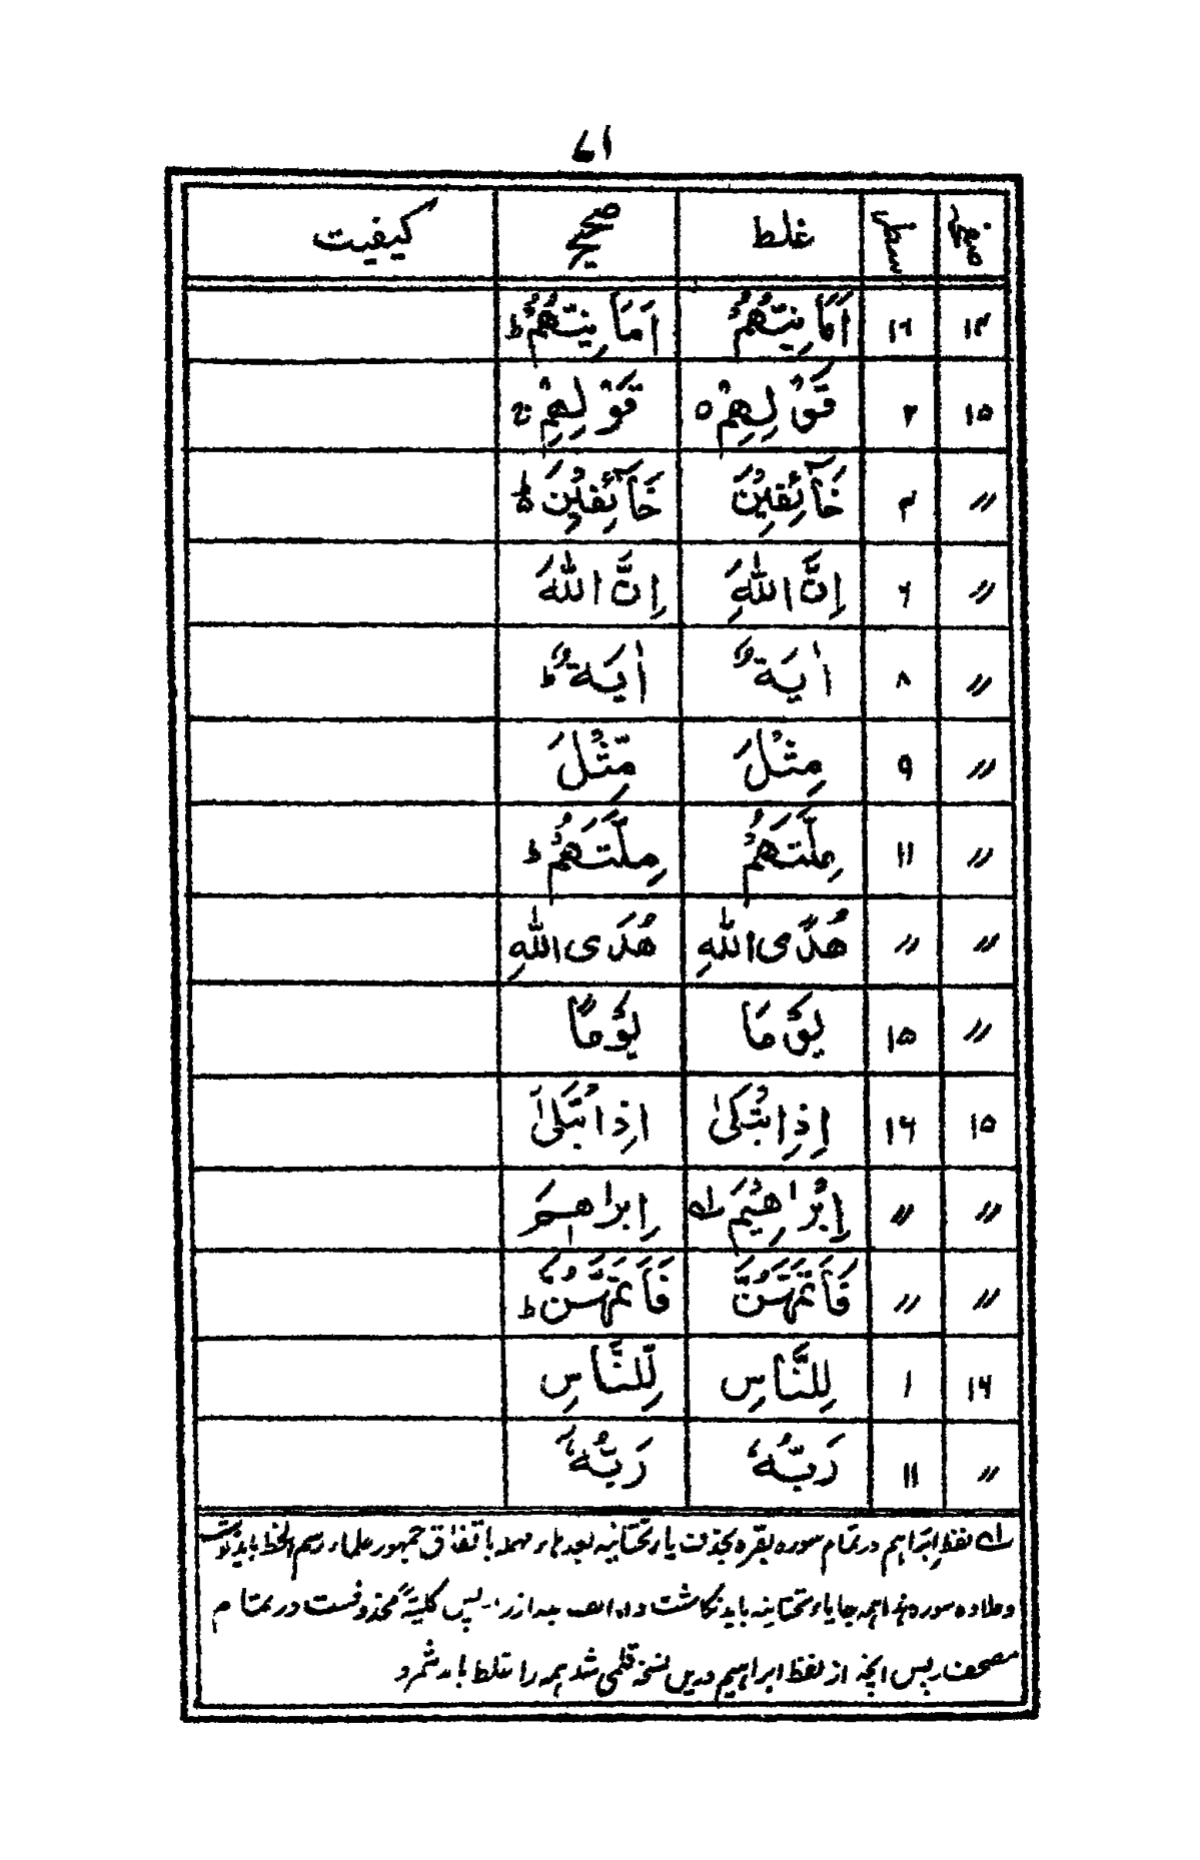 ۷۱
صفحہ سطر غلط صحیح کیفیت
۱۴ ۱۶ اَمَّانِیُّهُمْ اَمَانِیُّهُمْ ؕ
۱۵ ۲ قَوْلِهِمْ ۵ قَوْلِهِمْ
〃 ۴ خَآئِفِیْنَ خَآئِفِیْنَ ؕ
〃 ۶ اِنَّ اللّٰهِ اِنَّ اللّٰهَ
〃 ۸ اٰیَةٌ اٰیَةٌ ؕ
〃 ۹ مِثْلَ مِّثْلَ
〃 ۱۱ مِلَّتَهُمْ مِلَّتَهُمْ ؕ
〃 〃 هُدًی اللّٰهِ هُدَی اللّٰهِ
〃 ۱۵ یَوْمَا یَوْمًا
۱۵ ۱۶ اِذِ ابْتَلٰی اِذِ ابْتَلٰۤی
〃 〃 اِبْرٰهِیْمَ لہ اِبْرٰهٖمَ
〃 〃 فَاَتَمَّهُنَّ فَاَتَمَّهُنَّ ؕ
۱۶ ۱ لِلنَّاسِ لِّلنَّاسِ
〃 ۱۱ رَبُّهٗ رَبُّهٗۤ
لہ لفظ اِبْرَاہیم در تمام سورہ بقرہ بحذف یاء تحتانیہ بعد ہاء مہملہ باتفاق جمہور علماء رسم الخط باید نوشت
وعلاوہ سورہ ہذا ہمہ جا یاء تحتانیہ باید نگاشت و الف بعد از را پس کلیۃً محذوفست در تمام
مصحف پس آنچہ از لفظ ابراہیم دریں نسخہ قلمی شد ہمہ را غلط باید شمرد